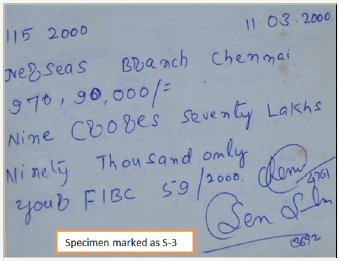 115 2000
11.03.2000.
Nerseas Branch Chennai
970,90,000/=
Nine Crores Seventy Lakhs
Ninety Thousand only
your FIBC 59/2000.
4761
3692
Specimen marked as S-3